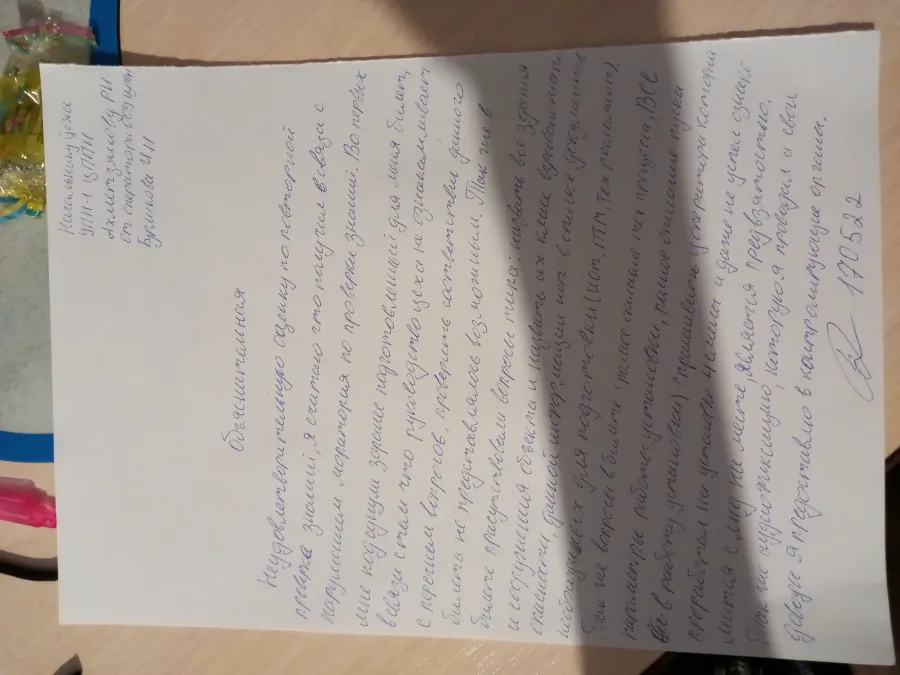 Начальнику цеха
УПН-1 ЦППН
Хаметзянову РИ
от оператора ООУ цппн
Бурмисова ЧП
Объяснительная
Неудовлетворительную оценку по повторной
проверка знаний, я считаю что получил в связи с
нарушением моратория по проверки знаний. Во первых
мне ходящим заранее подготовленный для меня билет,
в связи с тем что руководство цеха не ознакамливает
с перечнем вопросов, проверить соответствие данного
билета не представлялось возможным. Так же в
билете присутствовали вопросы типа: назвать все здания
и сооружения объекта и назвать их класс взрывопожаро
опасности, данной информации нет в списке документов
необходимых для подготовки (иот, ПТМ, тех регламент).
Так же вопросы в билете (полное описание тех процесса, все
параметры работы установки, полное описание пуска
в работу установки) спрашивать у оператора который
проработал на установке 4 месяца и даже не успел ознако
мится с ней на лете, является предвзятостью.
Так же аудиозапись, которую я проводил и свои
доводы я предоставлю в контролирующие органы.
170522